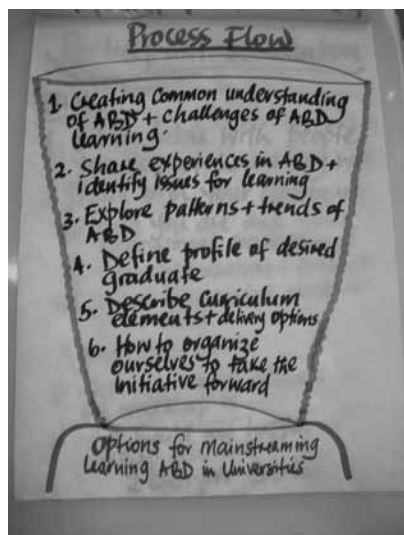 Process Flow
1. Creating Common understanding
of ABD + challenges of ABD
learning.
2. Share experiences in ABD +
identify issues for learning
3. Explore patterns + trends of
ABD
4. Define profile of desired
graduate
5. Describe Curriculum
elements + delivery options
6. How to organize
ourselves to take the
initiative forward
Options for Mainstreaming
Learning ABD in Universities